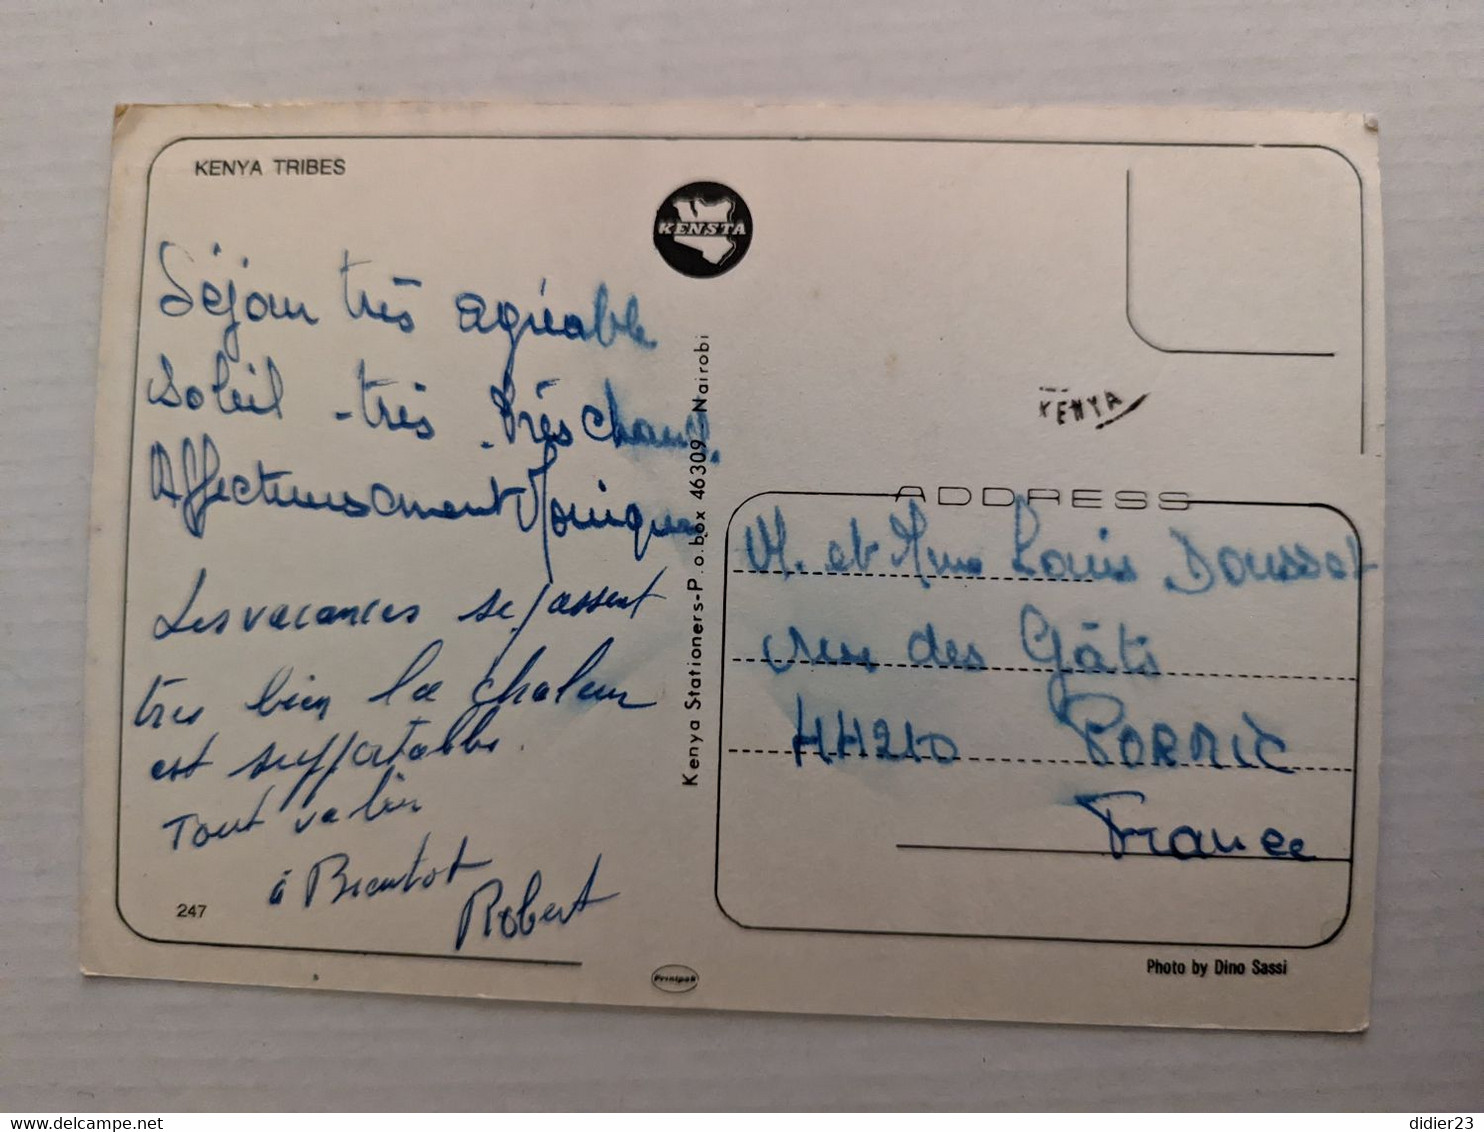 KENYA TRIBES
KENSTA
Séjour très agréable
soleil - très - très chaud.
Affectueusement Monique
Les vacances se passent
tres bien la chaleur
est supportable.
Tout va bien
à Bientot
Robert
247
Kenya Stationers-P.o.box 46309 - Nairobi
Printpak
KENYA
ADDRESS
M. et Mme Louis Dousset
rue des Gâts
44210 PORNIC
France
Photo by Dino Sassi
didier23